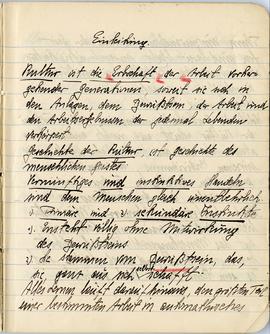 Einleitung
Kultur ist die Erbschaft der Arbeit vorher-
gehender Generationen, soweit sie sich in
den Anlagen, dem Bewußtsein, der Arbeit und
den Arbeitsergebnissen der jeweils Lebenden
verkörpert
Geschichte der Kultur, ist Geschichte des
menschlichen Geistes
Vernünftiges und instinktives Handeln
sind dem Menschen gleich unentbehrlich
1) Primäre und 2) sekundäre Instinkte
1) Instinkt völlig ohne Mitwirkung
des Bewußtseins
2) die stammen vom Bewußtsein, das
sie ganz aus sich selbst schafft.
Alles Lernen läuft darauf hinaus, den größten Teil
einer bestimmten Arbeit in automatisches